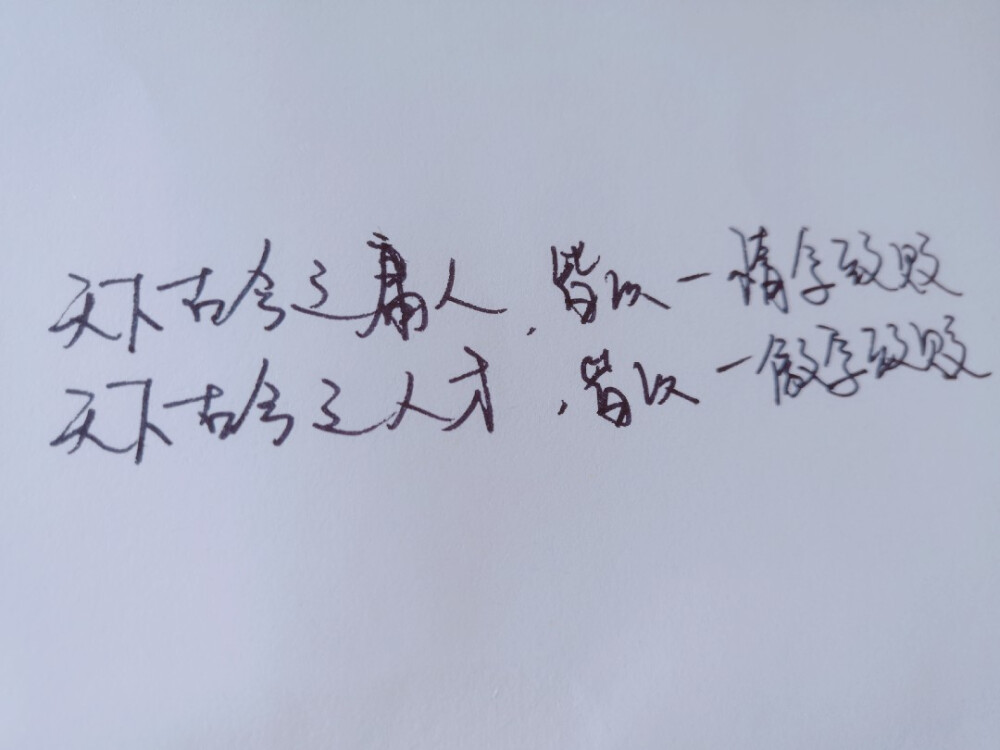 天下古今之庸人，皆以一惰字致败
天下古今之人才，皆以一傲字致败